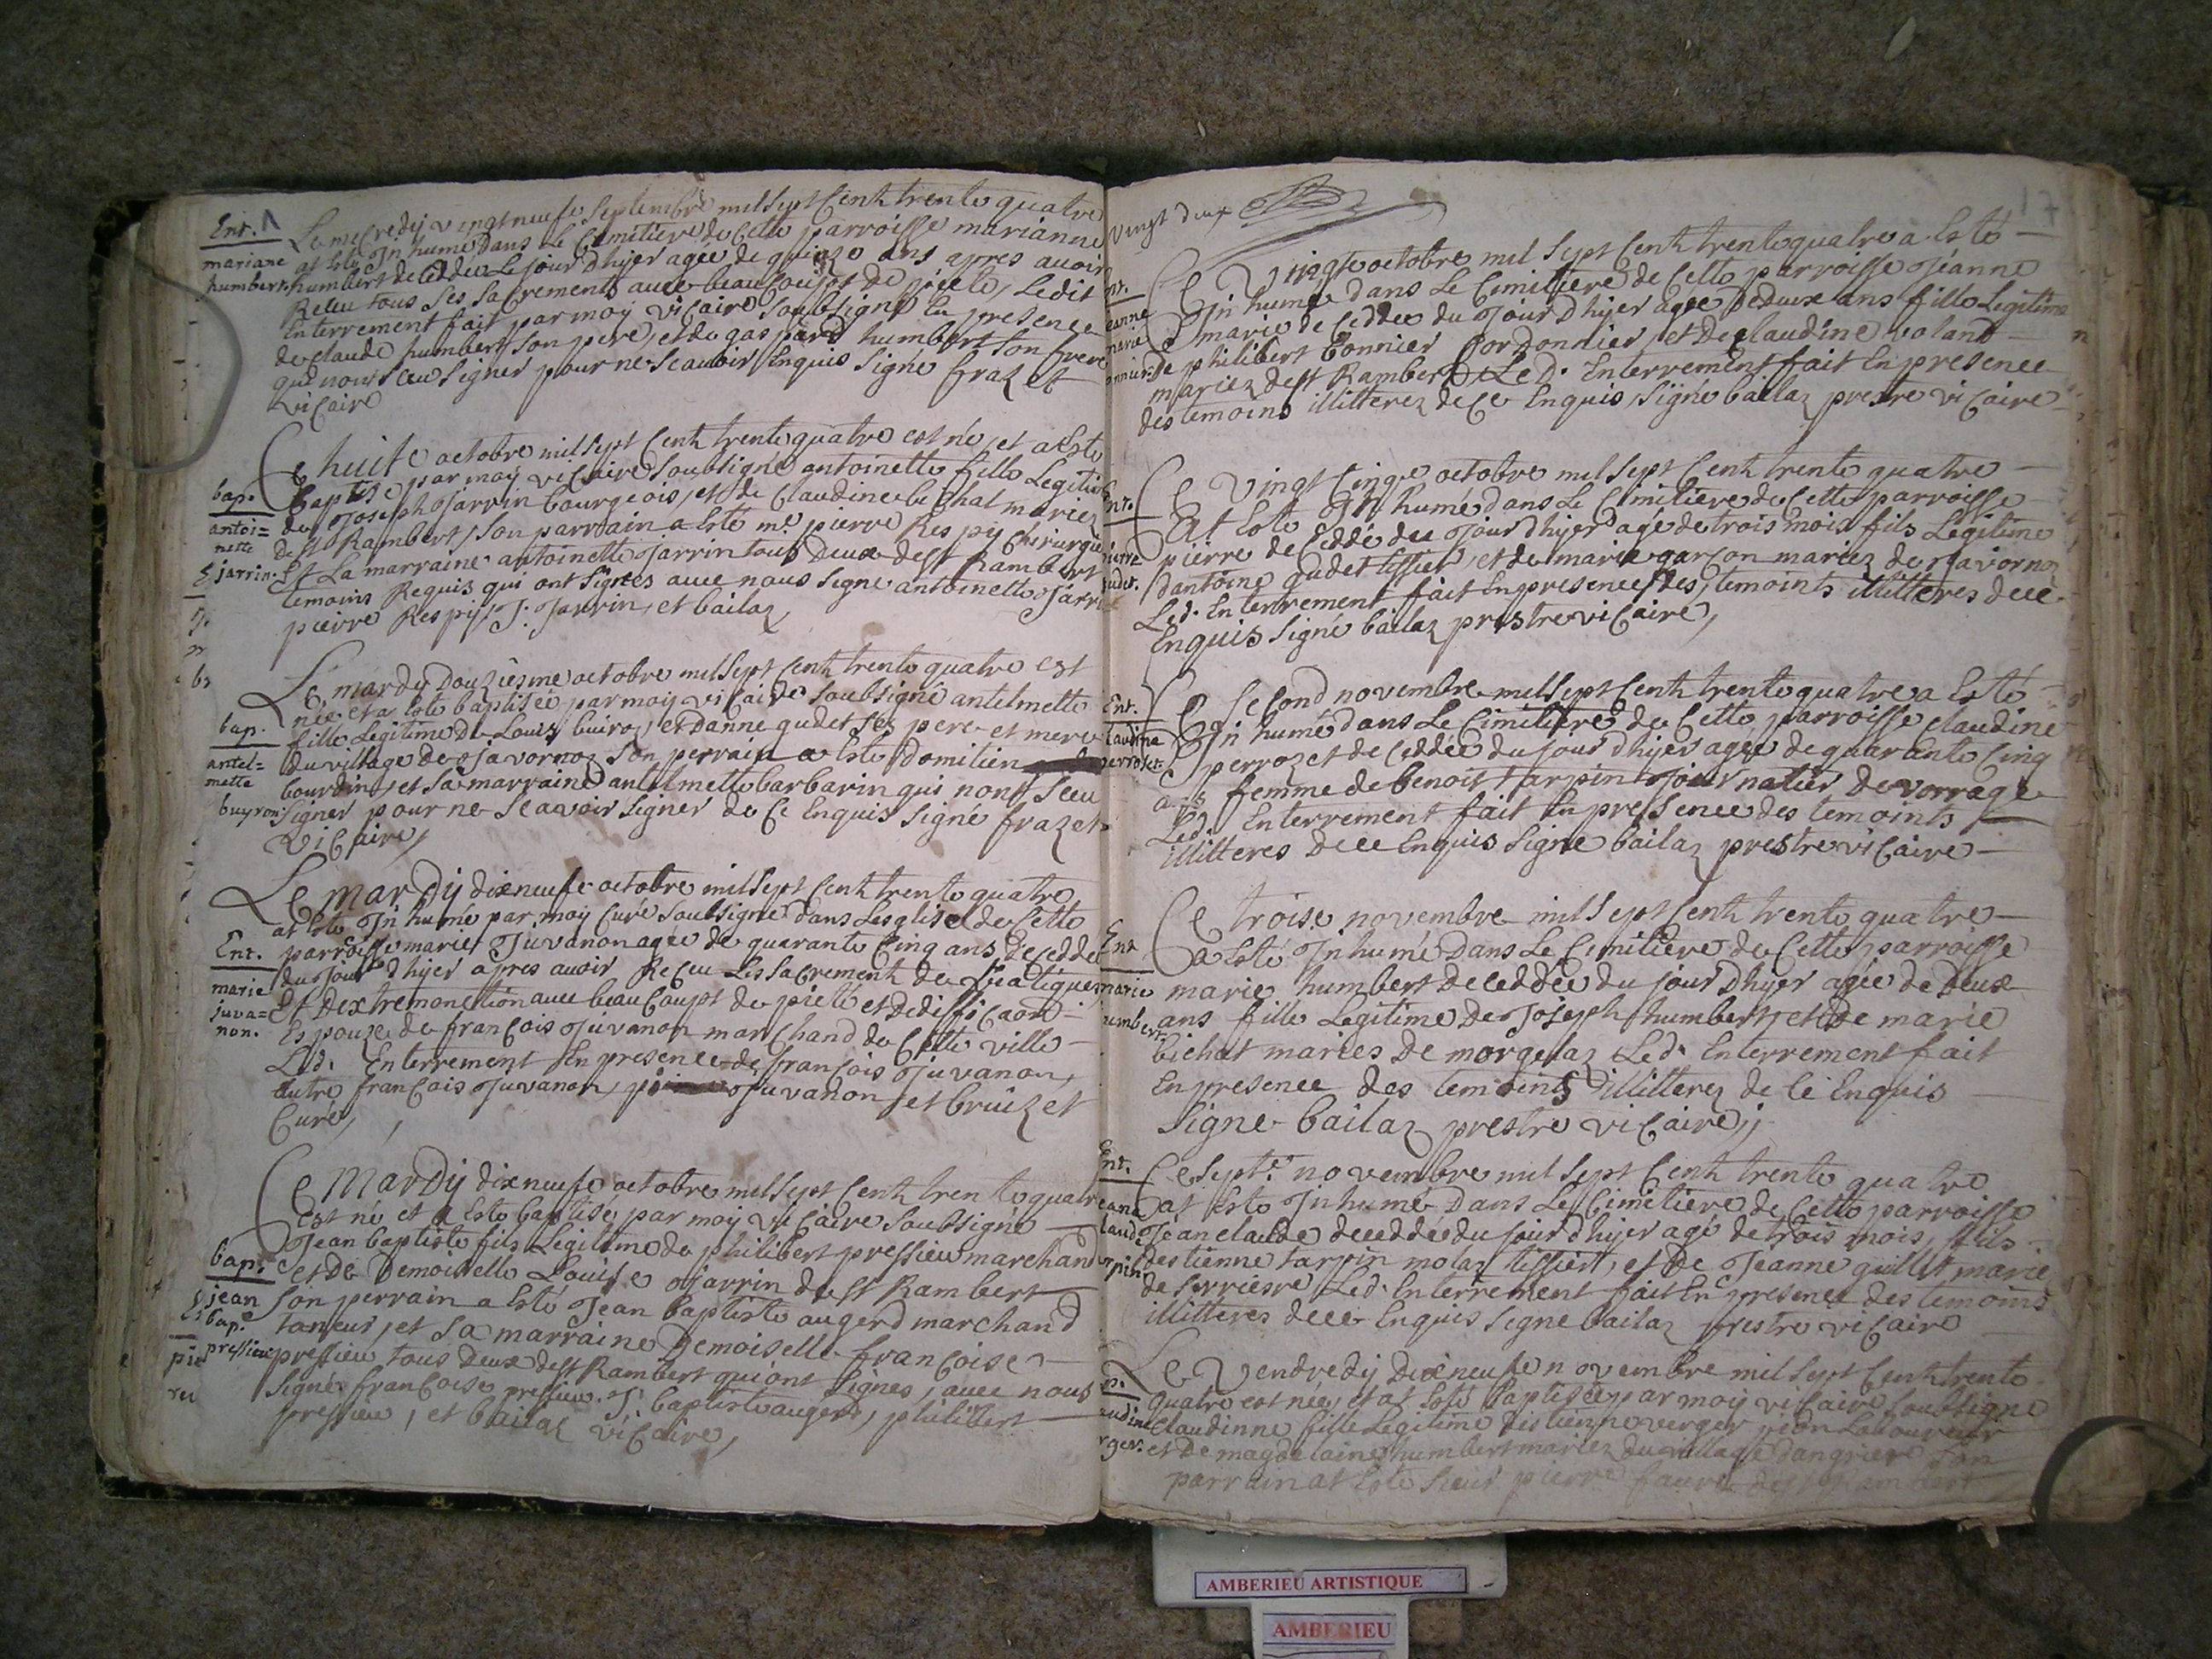 Ent.
mariane
humbert.
Le mecredy vingtneufe septembre mil sept Cent trente quatre
at esté Inhumé dans Le Cimitiere de Cette parroisse marianne
humbert deceddée Le jour dhyer agée de quinze ans apres auoir
Receu tous Ses Sacrements auec beaucoupt De pieté, Ledit
Enterrement fait par moy vicaire soubsigné En presence
de claude humbert son pere, et de gaspard humbert son frere
qui nont sceu signer pour ne Scauoir Enquis Signé frazet
vicaire
bap.
antoi=
nette
jarrin.
Ce huite octobre mil sept Cent trente quatre est né et a Esté
baptisé par moy vicaire soubsigné antoinette fille Legiti
de Joseph Jarrin bourgeois, et de Claudine bichat mariez
de st Rambert, son parrain a Esté me pierre Respy chirurgie
Et La marraine antoinette Jarrin tous Deux de st Rambert
temoins Requis qui ont Signées auec nous signé antoinette Jarri
pierre Respy, J. Jarrin, et bailaz
bap.
antel=
mette
buyron
Le mardy Douziesme octobre mil sept Cent trente quatre est
née et a Esté baptisée par moy vicaire soubsigné antelmette
fille Legitime De Louis buiroz, et danne gudet ses pere et mere
du village de Javornoz son perrain a Esté domitien
bourdin, et sa marraine antelmette barbarin qui nont Sceu
Signer pour ne Scavoir signer de Ce Enquis signé frazet
vicaire,
Ent.
marie
juva=
non.
Le mardy dixneufe octobre mil sept Cent trente quatre
at esté Inhumé par moy Curé soubsigné dans Lesglise de Cette
parroisse marie Juvanon agée de quarante Cinq ans decedde
du Jour dhyer apres auoir Receu Les Sacrement de Viatique
Et Dextremonction auec beaucoupt de pieté et dediffication
Espouze de francois Juvanon marchand de Cette ville
Led. Enterrement En presence de francois Juvanon,
autre francois Juvanon, Juvanon et bruizet
Curé,
bap.
jean
bap.
pressieu
Ce Mardy dixneufe octobre mil sept Cent trente quatre
est né et a Esté baptisé par moy vicaire soubsigné
Jean baptiste fils Legitime de philibert pressieu marchand
et De Demoiselle Louise Jarrin de st Rambert
Son perrain a Esté Jean baptiste augerd marchand
taneur, et sa marraine Demoiselle francoise
pressieu tous Deux de st Rambert qui ont Signés, auec nous
Signé francoise pressieu. J. baptiste augerd, philibert
pressieu, et bailaz vicaire,
vingt deux
17
Ce vingte octobre mil sept Cent trente quatre a Esté
Inhumé dans Le Cimitiere de Cette parroisse Jeanne
marie deceddee du Jour dhyer agée de deux ans fille Legitime
De philibert bonnier Cordonnier, et De claudine voland
mariez de st Rambert Led. Enterrement fait En presence
des temoins illitterez de ce Enquis, Signé bailaz prestre vicaire
Ce vingt Cinqe octobre mil sept Cent trente quatre
At Esté Inhumé dans Le Cimitiere de Cette parroisse
pierre deceddé du Jour dhyer agé de trois mois fils Legitime
dantoine gudet tissier, et de marie garcon mariez de Javornoz
Led. Enterrement fait En presence des temoints illitteres dece
Enquis Signé bailaz prestre vicaire,
Ent.
claudine
perrozet
Ce second novembre mil sept Cent trente quatre a Esté
Inhumé dans Le Cimitiere de Cette parroisse claudine
perrozet deceddée du Jour dhyer agée de quarante Cinq
ans femme de benoist tarpin Journalier de vorrage
Led. Enterrement fait En pressence des temoints
illitteres dece Enquis signé bailaz prestre vicaire
Ent
marie
humbert
Ce troise novembre mil sept Cent trente quatre
a Esté Inhumé Dans Le Cimitiere de Cette parroisse
marie humbert deceddée du jour dhyer agée de Deux
ans fille Legitime De Joseph humbert, et De marie
bichat mariés De morgelaz Led. Enterrement fait
En presence des temoints illitterez de Ce Enquis
Signé bailaz prestre vicaire,
Ent.
Ce septe novembre mil sept Cent trente quatre
at Esté Inhumé Dans Le Cimitiere de Cette parroisse
Jean claude deceddé du jour dhyer agé de trois mois, fils
destienne tarpin molaz tissiert, et De Jeanne guillet marié
de serriesre Led. Enterrement fait En presence des temoins
illitteres dece Enquis Signé bailaz prestre vicaire
Le Vendredy Dixneufe novembre mil sept Cent trente
quatre est née, et at Esté baptisée par moy vicaire soubsigné
Claudinne fille Legitime destienne verger Laboureur
et De magdelaine humbert mariez du village dangrieres Son
parrain at Esté Sieur pierre faure de st Rambert
AMBERIEU ARTISTIQUE
AMBERIEU